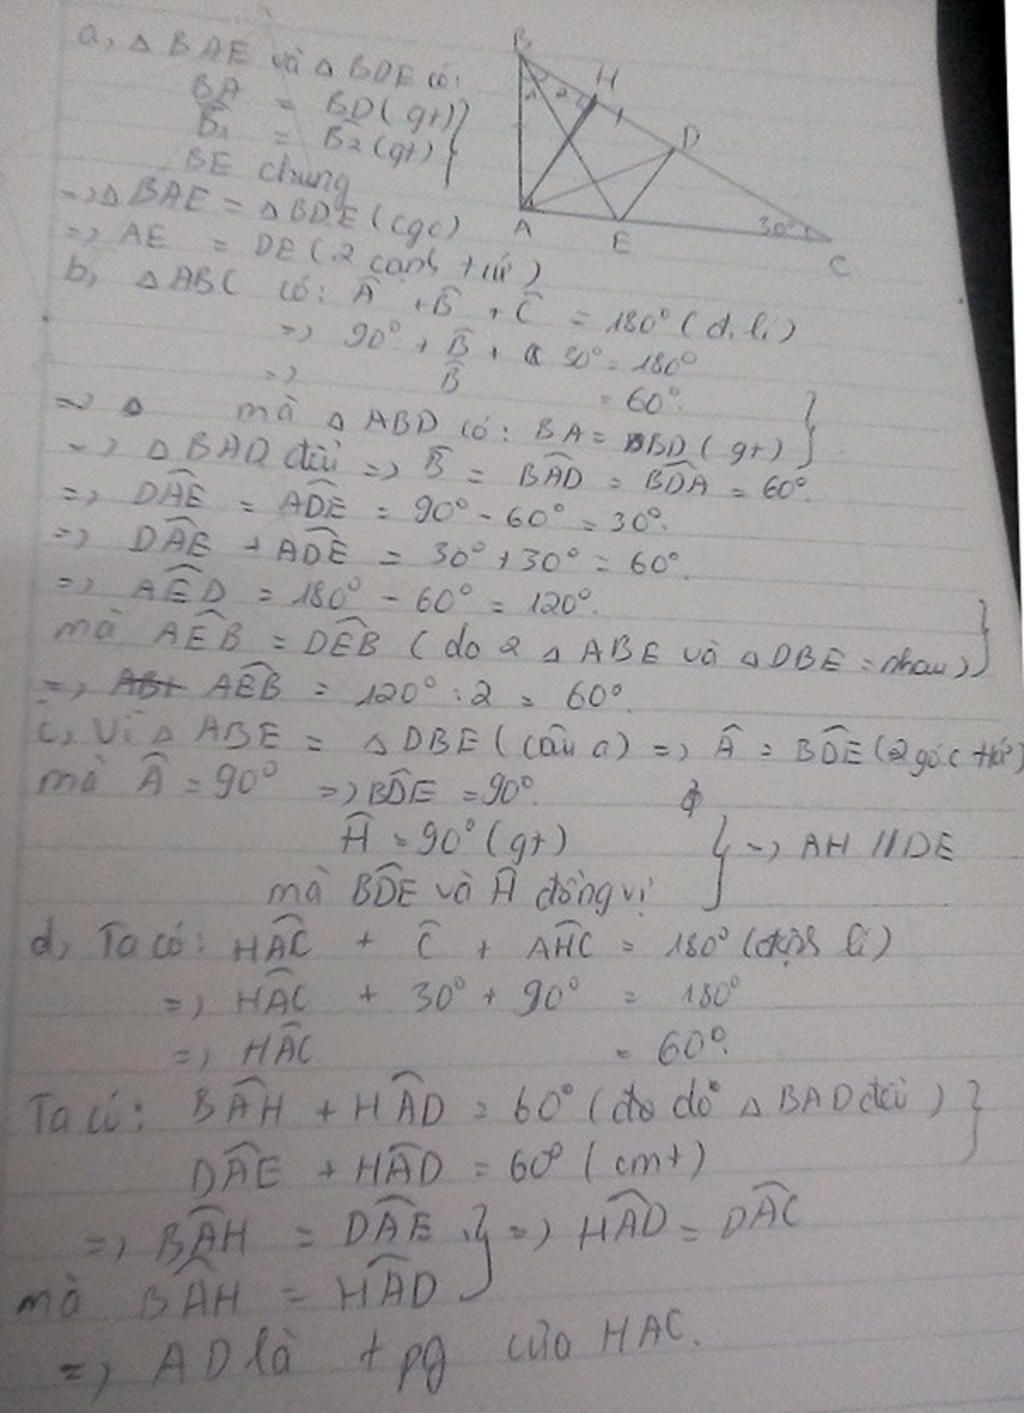 a, △ BAE và △ BDE có:
BA = BD (gt)
B̂₁ = B̂₂ (gt)
BE chung
=> △ BAE = △ BDE (cgc)
=> AE = DE (2 cạnh tứ)
b, △ ABC có: Â + B̂ + Ĉ = 180° (đ.lí)
=> 90° + B̂ + 30° = 180°
=> B̂ = 60°.
=> △ mà △ ABD có: BA = BD (gt)
=> △ BAD đều => B̂ = BÂD = BD̂A = 60°.
=> DÂE = AD̂E = 90° - 60° = 30°.
=> DÂE + AD̂E = 30° + 30° = 60°.
=> AÊD = 180° - 60° = 120°.
mà AÊB = DÊB (do 2 △ ABE và △ DBE = nhau)
=> AÊB = 120° : 2 = 60°.
c, Vì △ ABE = △ DBE (câu a) => Â = BD̂E (2 góc tứ)
mà Â = 90° => BD̂E = 90°.
Ĥ = 90° (gt)
=> AH // DE
mà BD̂E và Ĥ đồng vị
d, Ta có: HÂC + Ĉ + AĤC = 180° (định lí)
=> HÂC + 30° + 90° = 180°
=> HÂC = 60°.
Ta có: BÂH + HÂD = 60° (do △ BAD đều)
DÂE + HÂD = 60° (cmt)
=> BÂH = DÂE => HÂD = DÂC
mà BÂH = HÂD
=> AD là tpg của HAC.
B
H
1
2
D
A
E
30°
C